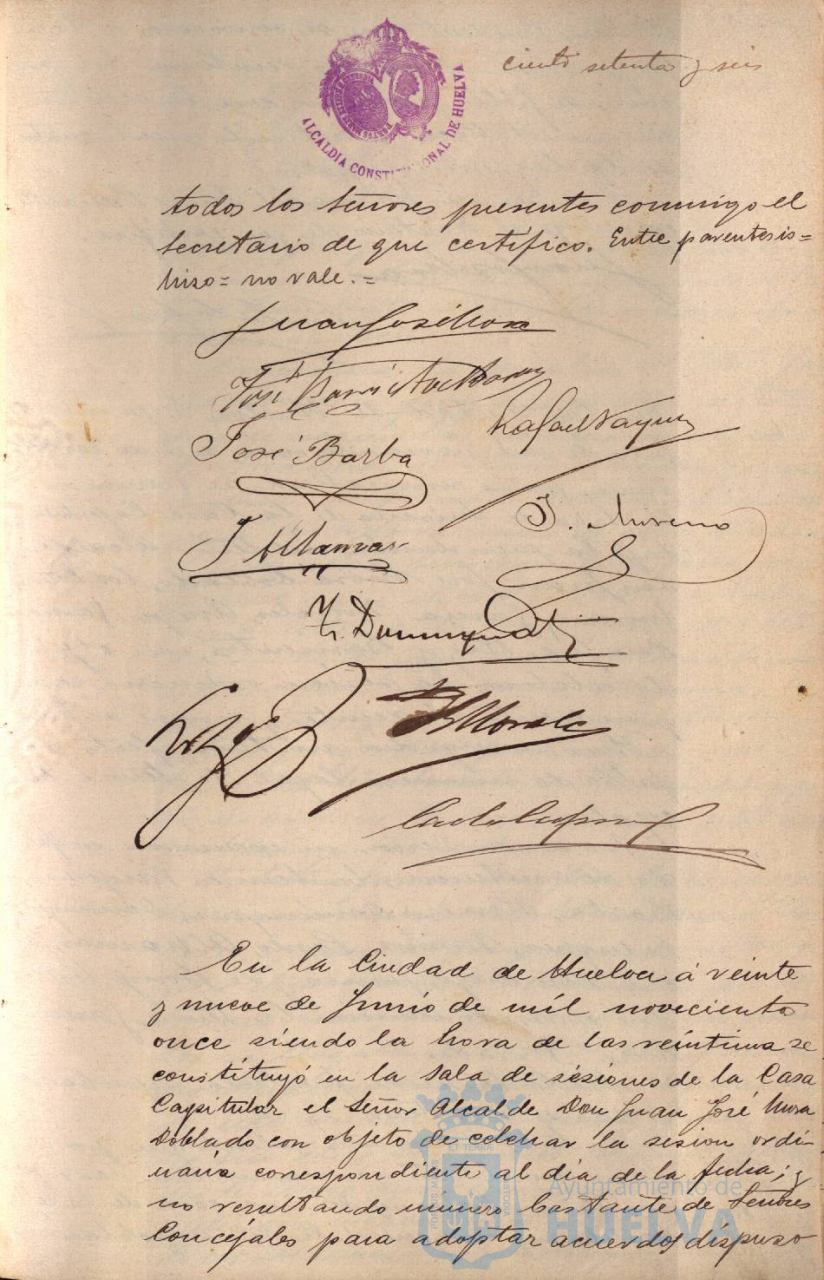 ciento setenta y seis
ALCALDIA CONSTITUCIONAL DE HUELVA
todos los Señores presentes conmigo el
Secretario de que certifico. Entre parentesis=
hizo= no vale.=
Juan José Mora
José
Rafael Vazquez
José Barba
J. Moreno
T. Dominguez
En la Ciudad de Huelva á veinte
y nueve de Junio de mil novecientos
once siendo la hora de las veintiuna se
constituyó en la Sala de sesiones de la Casa
Capitular el Señor Alcalde Don Juan José Mora
Doblado con objeto de celebrar la sesion ordi-
naria correspondiente al dia de la fecha; y
no resultando número bastante de Señores
Concejales para adoptar acuerdos dispuso
Ayuntamiento de
HUELVA